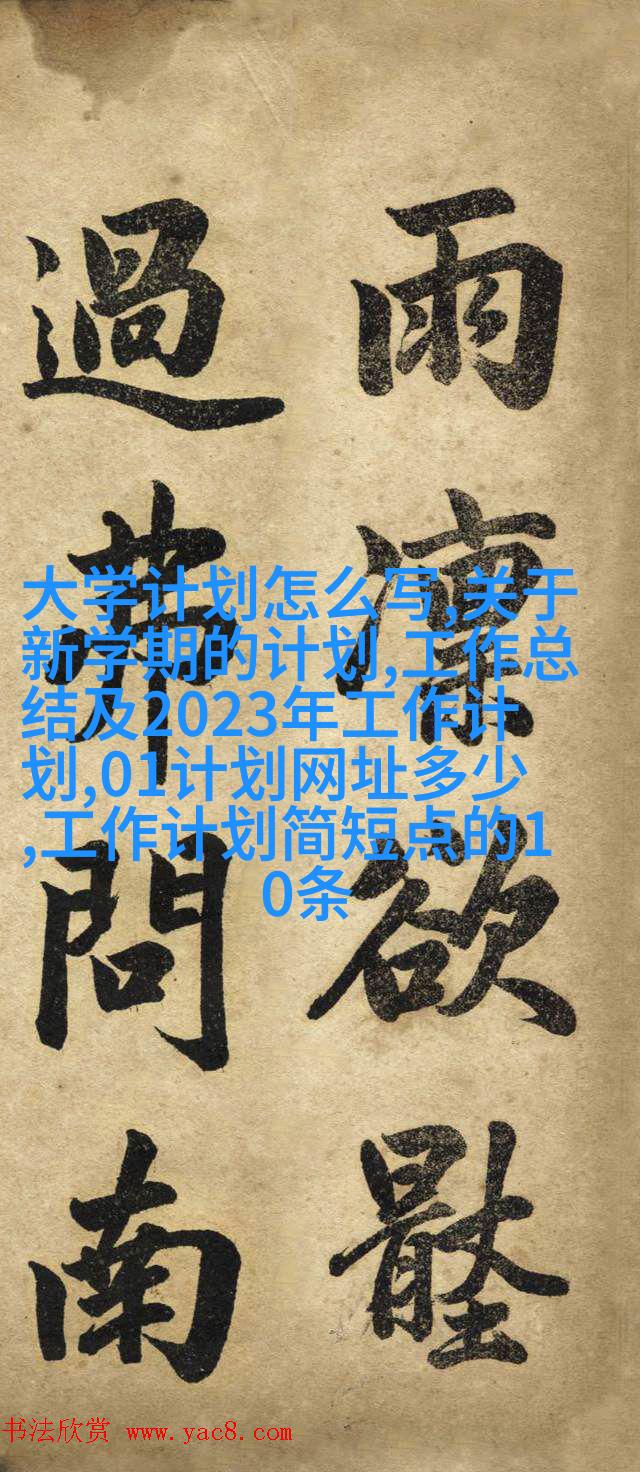 雨凜欲
過問南
大学计划怎么写,关于
新学期的计划,工作总
结及2023年工作计
划,01计划网址多少
,工作计划简短点的1
0条
书法欣赏 www.yac8.com